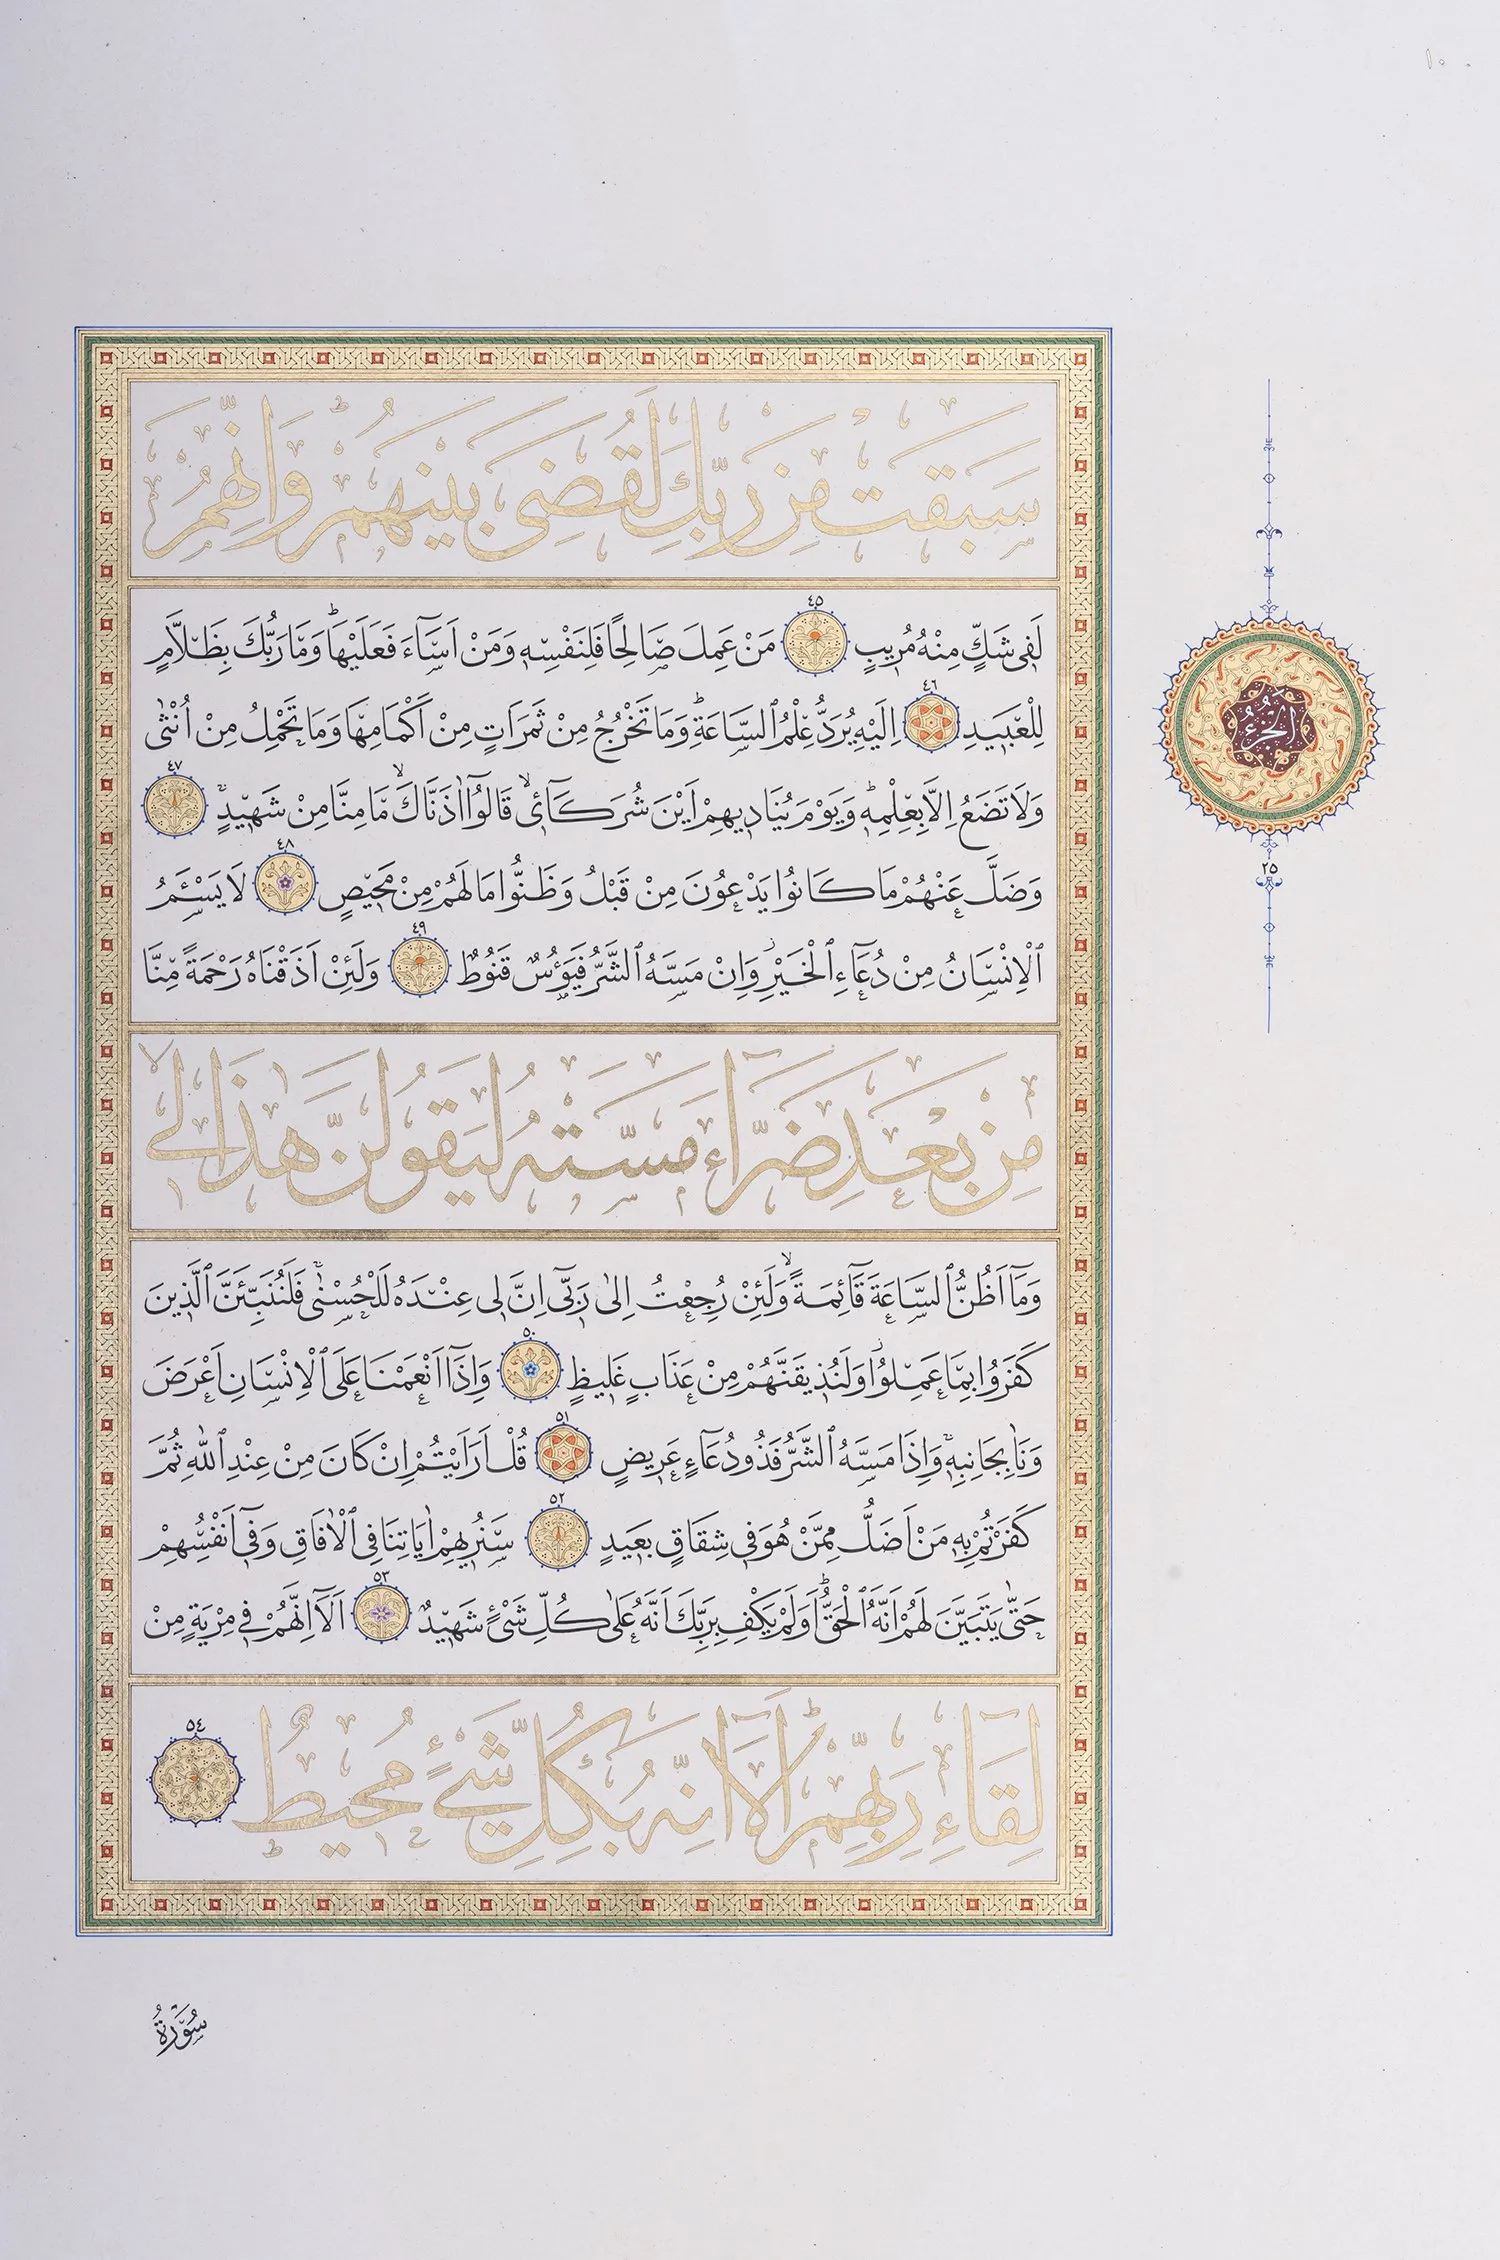 ١٠
سَبَقَتْ مِنْ رَبِّكَ لَقُضِىَ بَيْنَهُمْۜ وَاِنَّهُمْ
٤٥
لَفٖى شَكٍّ مِنْهُ مُرٖيبٍ مَنْ عَمِلَ صَالِحًا فَلِنَفْسِهٖ وَمَنْ اَسَٓاءَ فَعَلَيْهَاۜ وَمَا رَبُّكَ بِظَلَّامٍ
٤٦
لِلْعَبٖيدِ اِلَيْهِ يُرَدُّ عِلْمُ السَّاعَةِۜ وَمَا تَخْرُجُ مِنْ ثَمَرَاتٍ مِنْ اَكْمَامِهَا وَمَا تَحْمِلُ مِنْ اُنْثٰى
٤٧
وَلَا تَضَعُ اِلَّا بِعِلْمِهٖۜ وَيَوْمَ يُنَادٖيهِمْ اَيْنَ شُرَكَٓائٖىۙ قَالُٓوا اٰذَنَّاكَۙ مَا مِنَّا مِنْ شَهٖيدٍۚ
٤٨
وَضَلَّ عَنْهُمْ مَا كَانُوا يَدْعُونَ مِنْ قَبْلُ وَظَنُّوا مَا لَهُمْ مِنْ مَحٖيصٍ لَا يَسْـَٔمُ
٤٩
الْاِنْسَانُ مِنْ دُعَٓاءِ الْخَيْرِؗ وَاِنْ مَسَّهُ الشَّرُّ فَيَؤُ۫سٌ قَنُوطٌ وَلَئِنْ اَذَقْنَاهُ رَحْمَةً مِنَّا
مِنْ بَعْدِ ضَرَّٓاءَ مَسَّتْهُ لَيَقُولَنَّ هٰذَا لٖىۙ
وَمَٓا اَظُنُّ السَّاعَةَ قَٓائِمَةًۙ وَلَئِنْ رُجِعْتُ اِلٰى رَبّٖٓى اِنَّ لٖى عِنْدَهُ لَلْحُسْنٰىۚ فَلَنُنَبِّئَنَّ الَّذٖينَ
٥٠
كَفَرُوا بِمَا عَمِلُواؗ وَلَنُذٖيقَنَّهُمْ مِنْ عَذَابٍ غَلٖيظٍ وَاِذَٓا اَنْعَمْنَا عَلَى الْاِنْسَانِ اَعْرَضَ
٥١
وَنَاٰ بِجَانِبِهٖۚ وَاِذَا مَسَّهُ الشَّرُّ فَذُو دُعَٓاءٍ عَرٖيضٍ قُلْ اَرَاَيْتُمْ اِنْ كَانَ مِنْ عِنْدِ اللّٰهِ ثُمَّ
٥٢
كَفَرْتُمْ بِهٖ مَنْ اَضَلُّ مِمَّنْ هُوَ فٖى شِقَاقٍ بَعٖيدٍ سَنُرٖيهِمْ اٰيَاتِنَا فِى الْاٰفَاقِ وَفٖٓى اَنْفُسِهِمْ
٥٣
حَتّٰى يَتَبَيَّنَ لَهُمْ اَنَّهُ الْحَقُّۜ اَوَلَمْ يَكْفِ بِرَبِّكَ اَنَّهُ عَلٰى كُلِّ شَىْءٍ شَهٖيدٌ اَلَٓا اِنَّهُمْ فٖى مِرْيَةٍ مِنْ
٥٤
لِقَٓاءِ رَبِّهِمْۜ اَلَٓا اِنَّهُ بِكُلِّ شَىْءٍ مُحٖيطٌ
اَلْجُزْءُ
٢٥
سُورَةُ